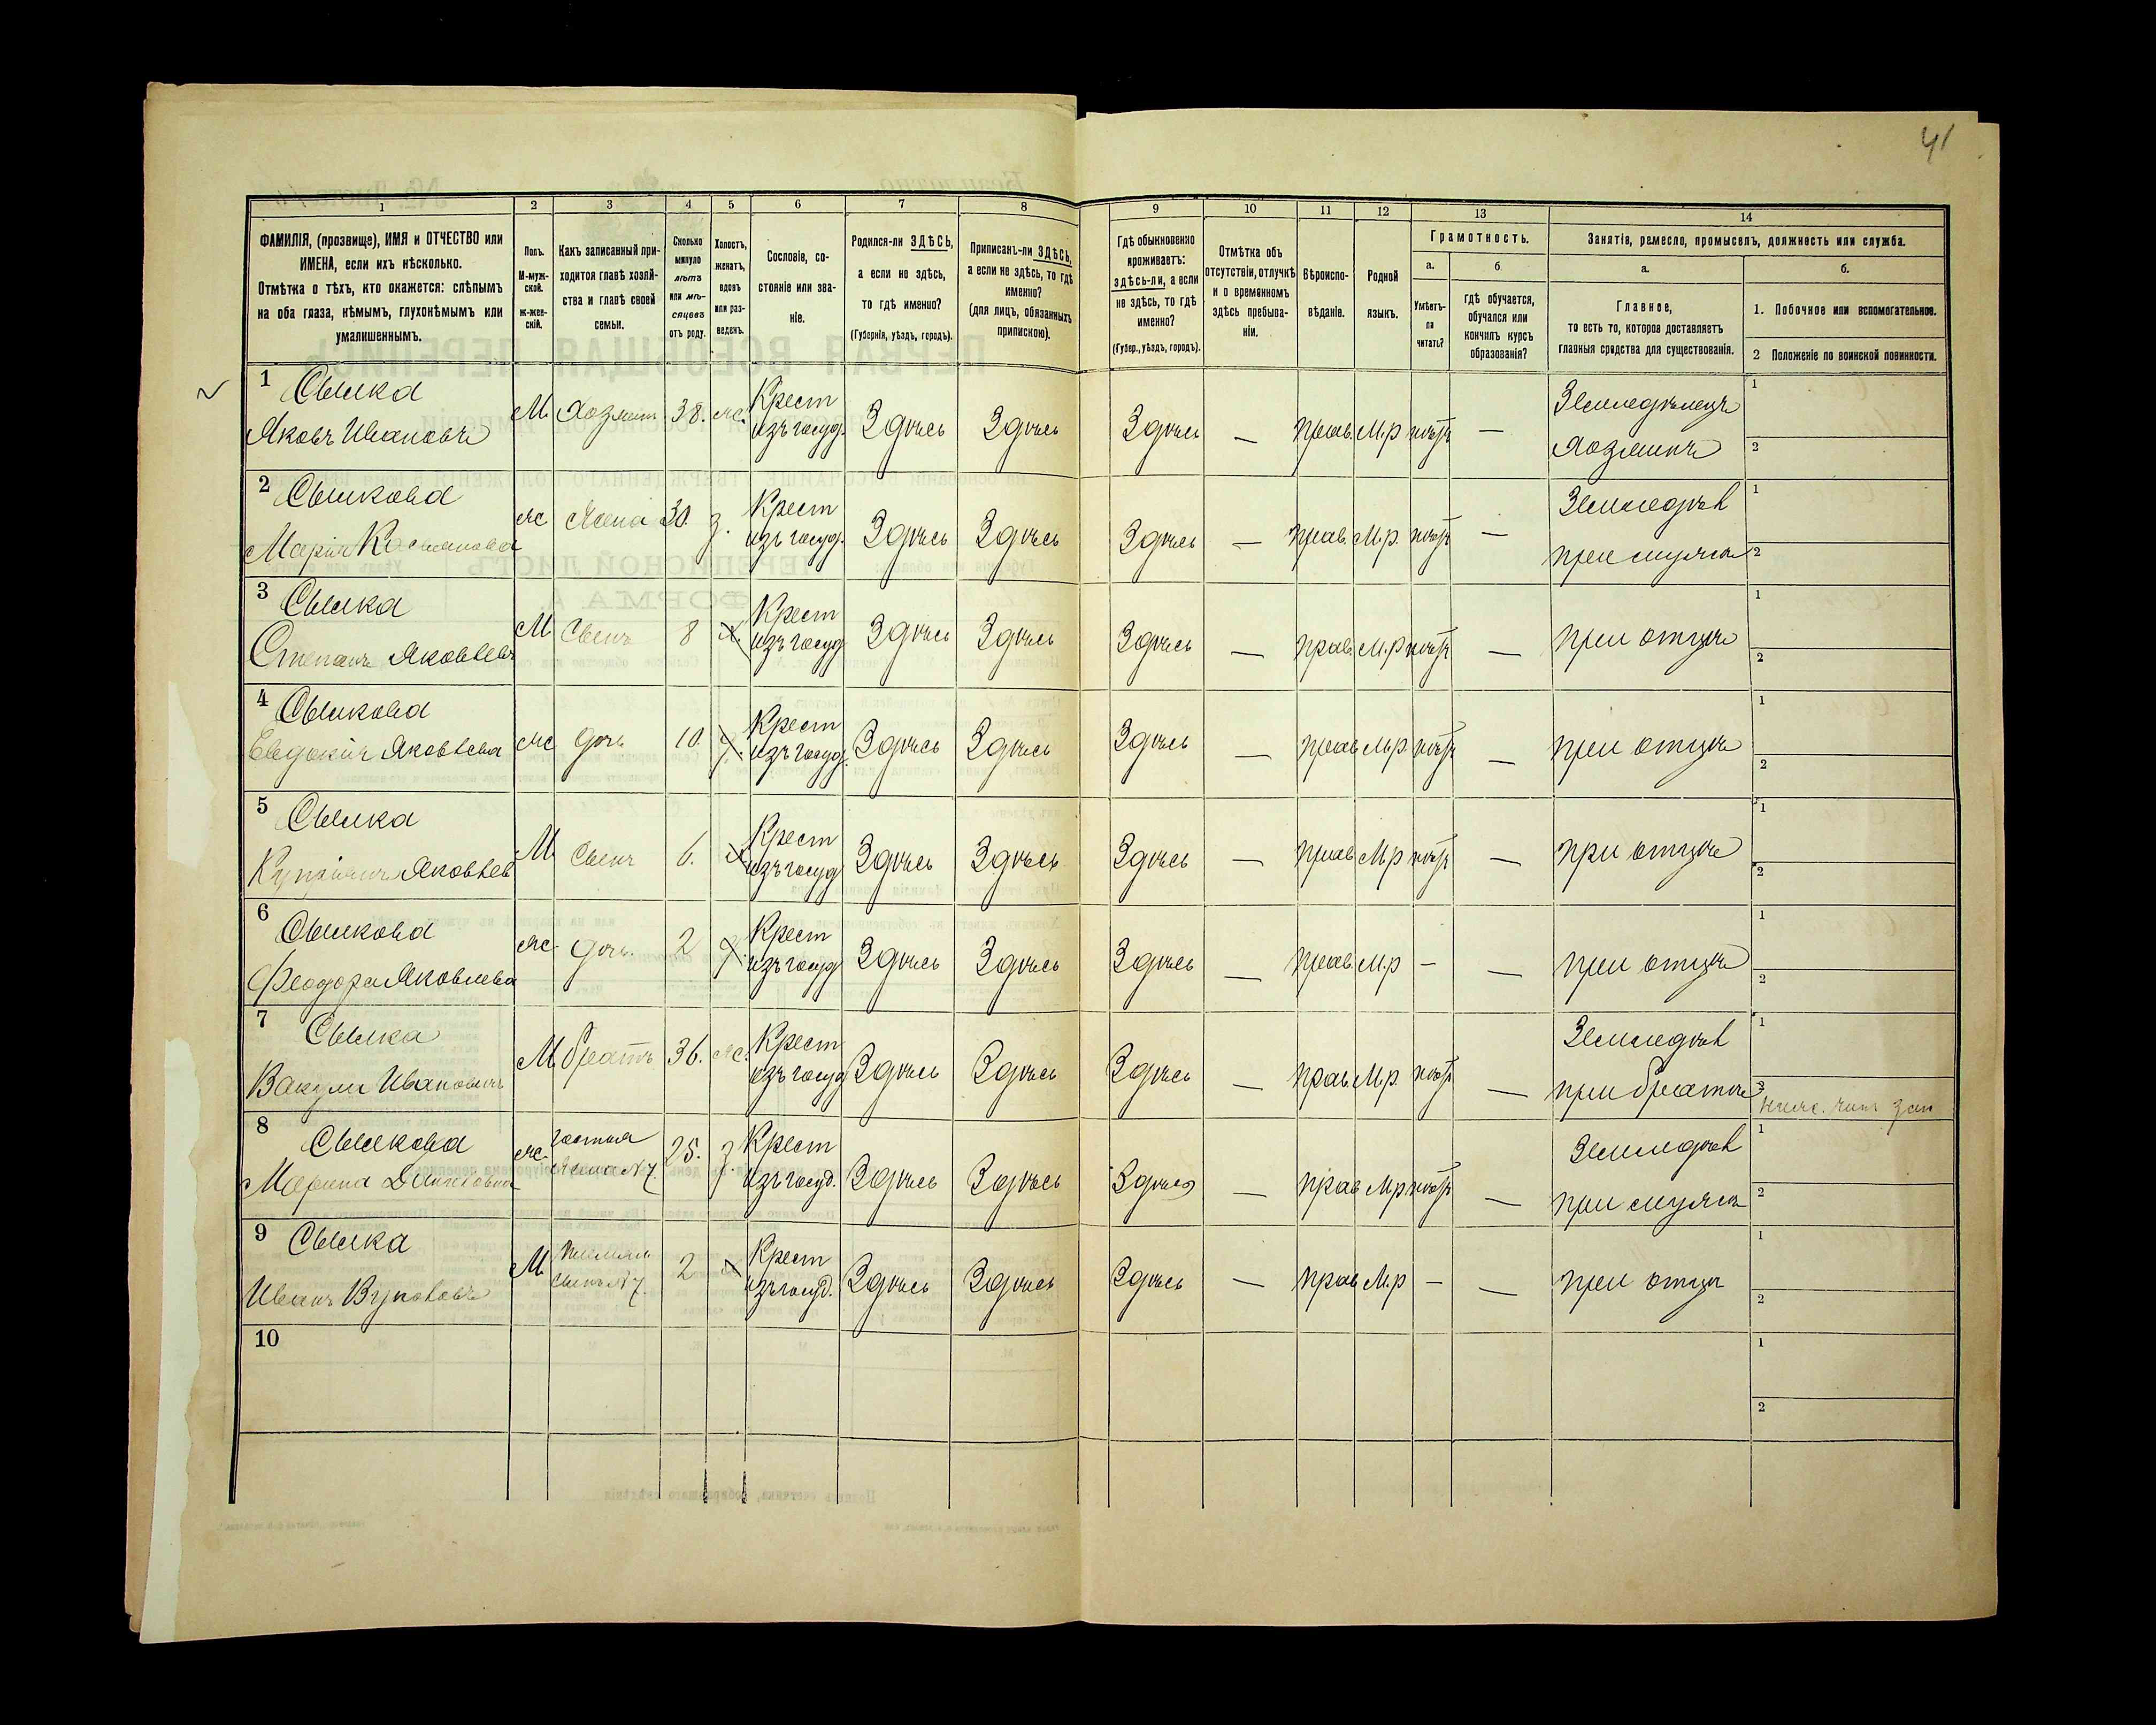 41
1
2
3
4
5
6
7
8
9
10
11
12
13
14
ФАМИЛІЯ, (прозвище), ИМЯ и ОТЧЕСТВО или
ИМЕНА, если ихъ нѣсколько.
Отмѣтка о тѣхъ, кто окажется: слѣпымъ
на оба глаза, нѣмымъ, глухонѣмымъ или
умалишеннымъ.
Полъ.
М-муж-
ской.
ж-жен-
скій.
Какъ записанный при-
ходится главѣ хозяй-
ства и главѣ своей
семьи.
Сколько
минуло
лѣтъ
или мѣ-
сяцевъ
отъ роду.
Холостъ,
женатъ,
вдовъ
или раз-
веденъ.
Сословіе, со-
стояніе или зва-
ніе.
Родился-ли ЗДѢСЬ,
а если не здѣсь,
то гдѣ именно?
(Губернія, уѣздъ, городъ).
Приписанъ-ли ЗДѢСЬ,
а если не здѣсь, то гдѣ
именно?
(для лицъ, обязанныхъ
припискою).
Гдѣ обыкновенно
проживаетъ:
здѣсь-ли, а если
не здѣсь, то гдѣ
именно?
(Губер., уѣздъ, городъ).
Отмѣтка объ
отсутствіи, отлучкѣ
и о временномъ
здѣсь пребыва-
ніи.
Вѣроиспо-
вѣданіе.
Родной
языкъ.
Грамотность.
а.
Умѣетъ-
ли
читать?
б
гдѣ обучается,
обучался или
кончилъ курсъ
образованія?
Занятіе, ремесло, промыселъ, должность или служба.
а.
Главное,
то есть то, которое доставляетъ
главныя средства для существованія.
б.
1. Побочное или вспомогательное.
2 Положеніе по воинской повинности.
1 Сышка
Яковъ Ивановъ М. Хозяинъ 38. ж. Крест изъ госуд. Здѣсь Здѣсь Здѣсь — прав. М.р нѣтъ — Земледѣлецъ Хозяинъ 1 2
2 Сышкова
Марія ж Жена 30. з. Крест изъ госуд. Здѣсь Здѣсь Здѣсь — прав. М.р. нѣтъ — Земледѣл при мужѣ 1 2
3 Сышка
Степанъ Яковлевъ М Сынъ 8 х. Крест изъ госуд Здѣсь Здѣсь Здѣсь — прав. М.р нѣтъ — при отцѣ 1 2
4 Сышкова
Евдокія Яковлева ж дочь 10. Крест изъ госуд. Здѣсь Здѣсь Здѣсь — прав М.р нѣтъ — при отцѣ 1 2
5 Сышка
Яковлев М Сынъ 6. х Крест изъ госуд Здѣсь Здѣсь Здѣсь — прав М.р нѣтъ — при отцѣ 1 2
6 Сышкова
Феодора Яковлева ж. дочь. 2 Крест изъ госуд Здѣсь Здѣсь Здѣсь — прав. М.р — — при отцѣ 1 2
7 Сышка
Вакула Ивановичъ М братъ 36. ж. Крест изъ госуд Здѣсь Здѣсь Здѣсь — прав. М.р. нѣтъ — Земледѣл при братѣ 1
8 Сышкова
Марина ж. жена №7. 25. з. Крест изъ госуд. Здѣсь Здѣсь Здѣсь — прав М.р нѣтъ — Земледѣл при мужѣ 1 2
9 Сышка
Иванъ М сынъ №7. 2 х Крест изъ госуд. Здѣсь Здѣсь Здѣсь — прав М.р — — при отцѣ 1 2
10 1 2